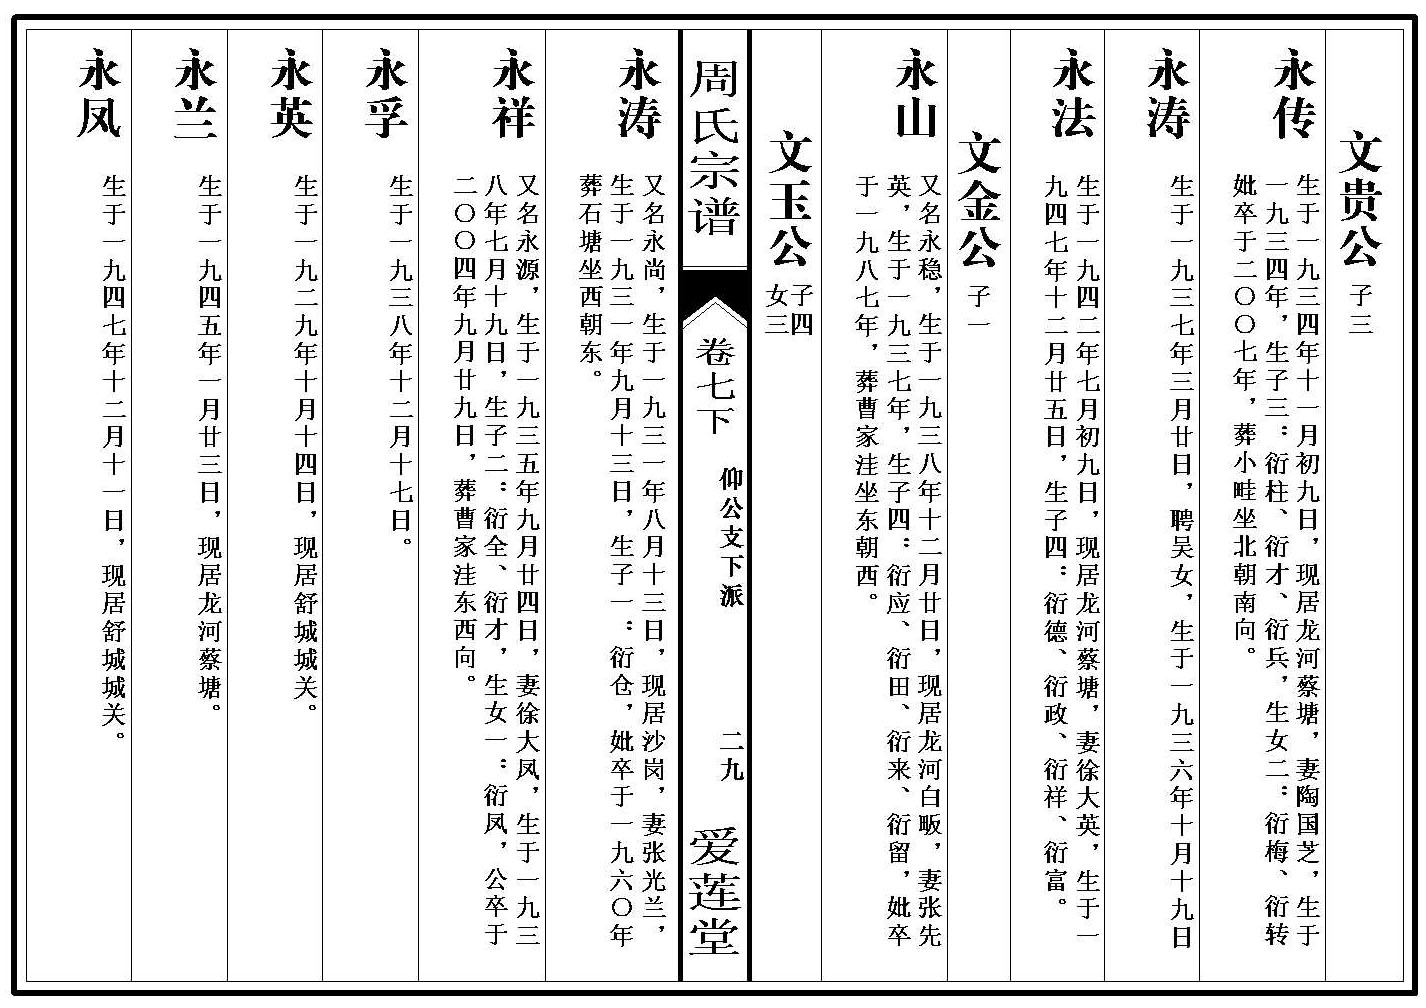 文贵公 子三
永传
生于一九三四年十一月初九日，现居龙河蔡塘，妻陶国芝，生于
一九三四年，生子三：衍柱、衍才、衍兵，生女二：衍梅、衍转
妣卒于二〇〇七年，葬小畦坐北朝南向。
永涛
生于一九三七年三月廿日，聘吴女，生于一九三六年十月十九日
永法
生于一九四二年七月初九日，现居龙河蔡塘，妻徐大英，生于一
九四七年十二月廿五日，生子四：衍德、衍政、衍祥、衍富。
文金公 子一
永山
又名永稳，生于一九三八年十二月廿日，现居龙河白畈，妻张先
英，生于一九三七年，生子四：衍应、衍田、衍来、衍留，妣卒
于一九八七年，葬曹家洼坐东朝西。
文玉公 子四
女三
周氏宗谱
卷七下
仰公支下派
二九
爱莲堂
永涛
又名永尚，生于一九三一年八月十三日，现居沙岗，妻张光兰，
生于一九三一年九月十三日，生子一：衍仓，妣卒于一九六〇年
葬石塘坐西朝东。
永祥
又名永源，生于一九三五年九月廿四日，妻徐大凤，生于一九三
八年七月十九日，生子二：衍全、衍才，生女一：衍凤，公卒于
二〇〇四年九月廿九日，葬曹家洼东西向。
永孚
生于一九三八年十二月十七日。
永英
生于一九二九年十月十四日，现居舒城城关。
永兰
生于一九四五年一月廿三日，现居龙河蔡塘。
永凤
生于一九四七年十二月十一日，现居舒城城关。